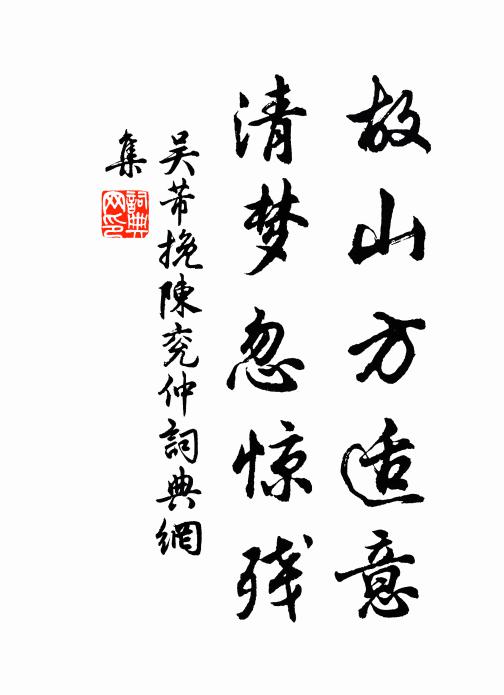 故山方适意
清梦忽惊残
吴芾挽陳兖仲詞典網
集
詞典网印